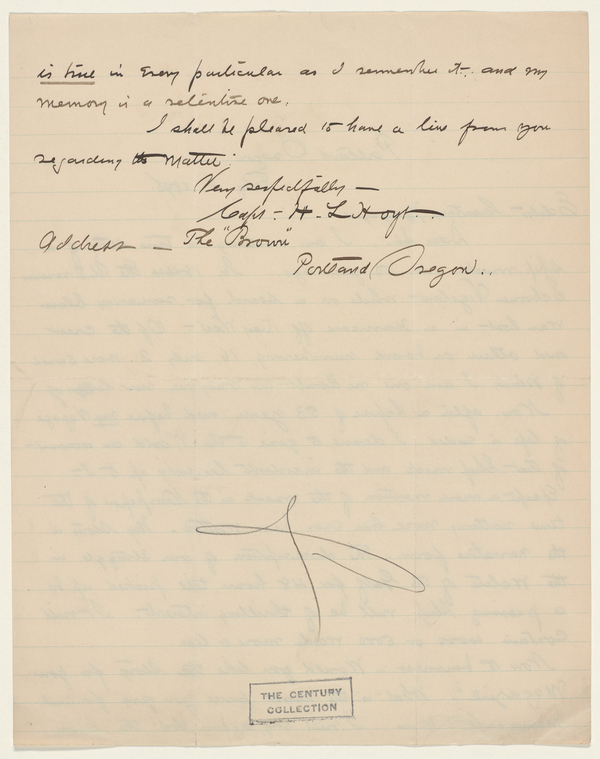 is true in Every particular as I remember it - and my
memory is a retentive one.
I shall be pleased to have a line from you
regarding the Matter.
Very respectfully —
Capt - H - L Hoyt -
Address — The "Brown"
Portland Oregon..
THE CENTURY
COLLECTION